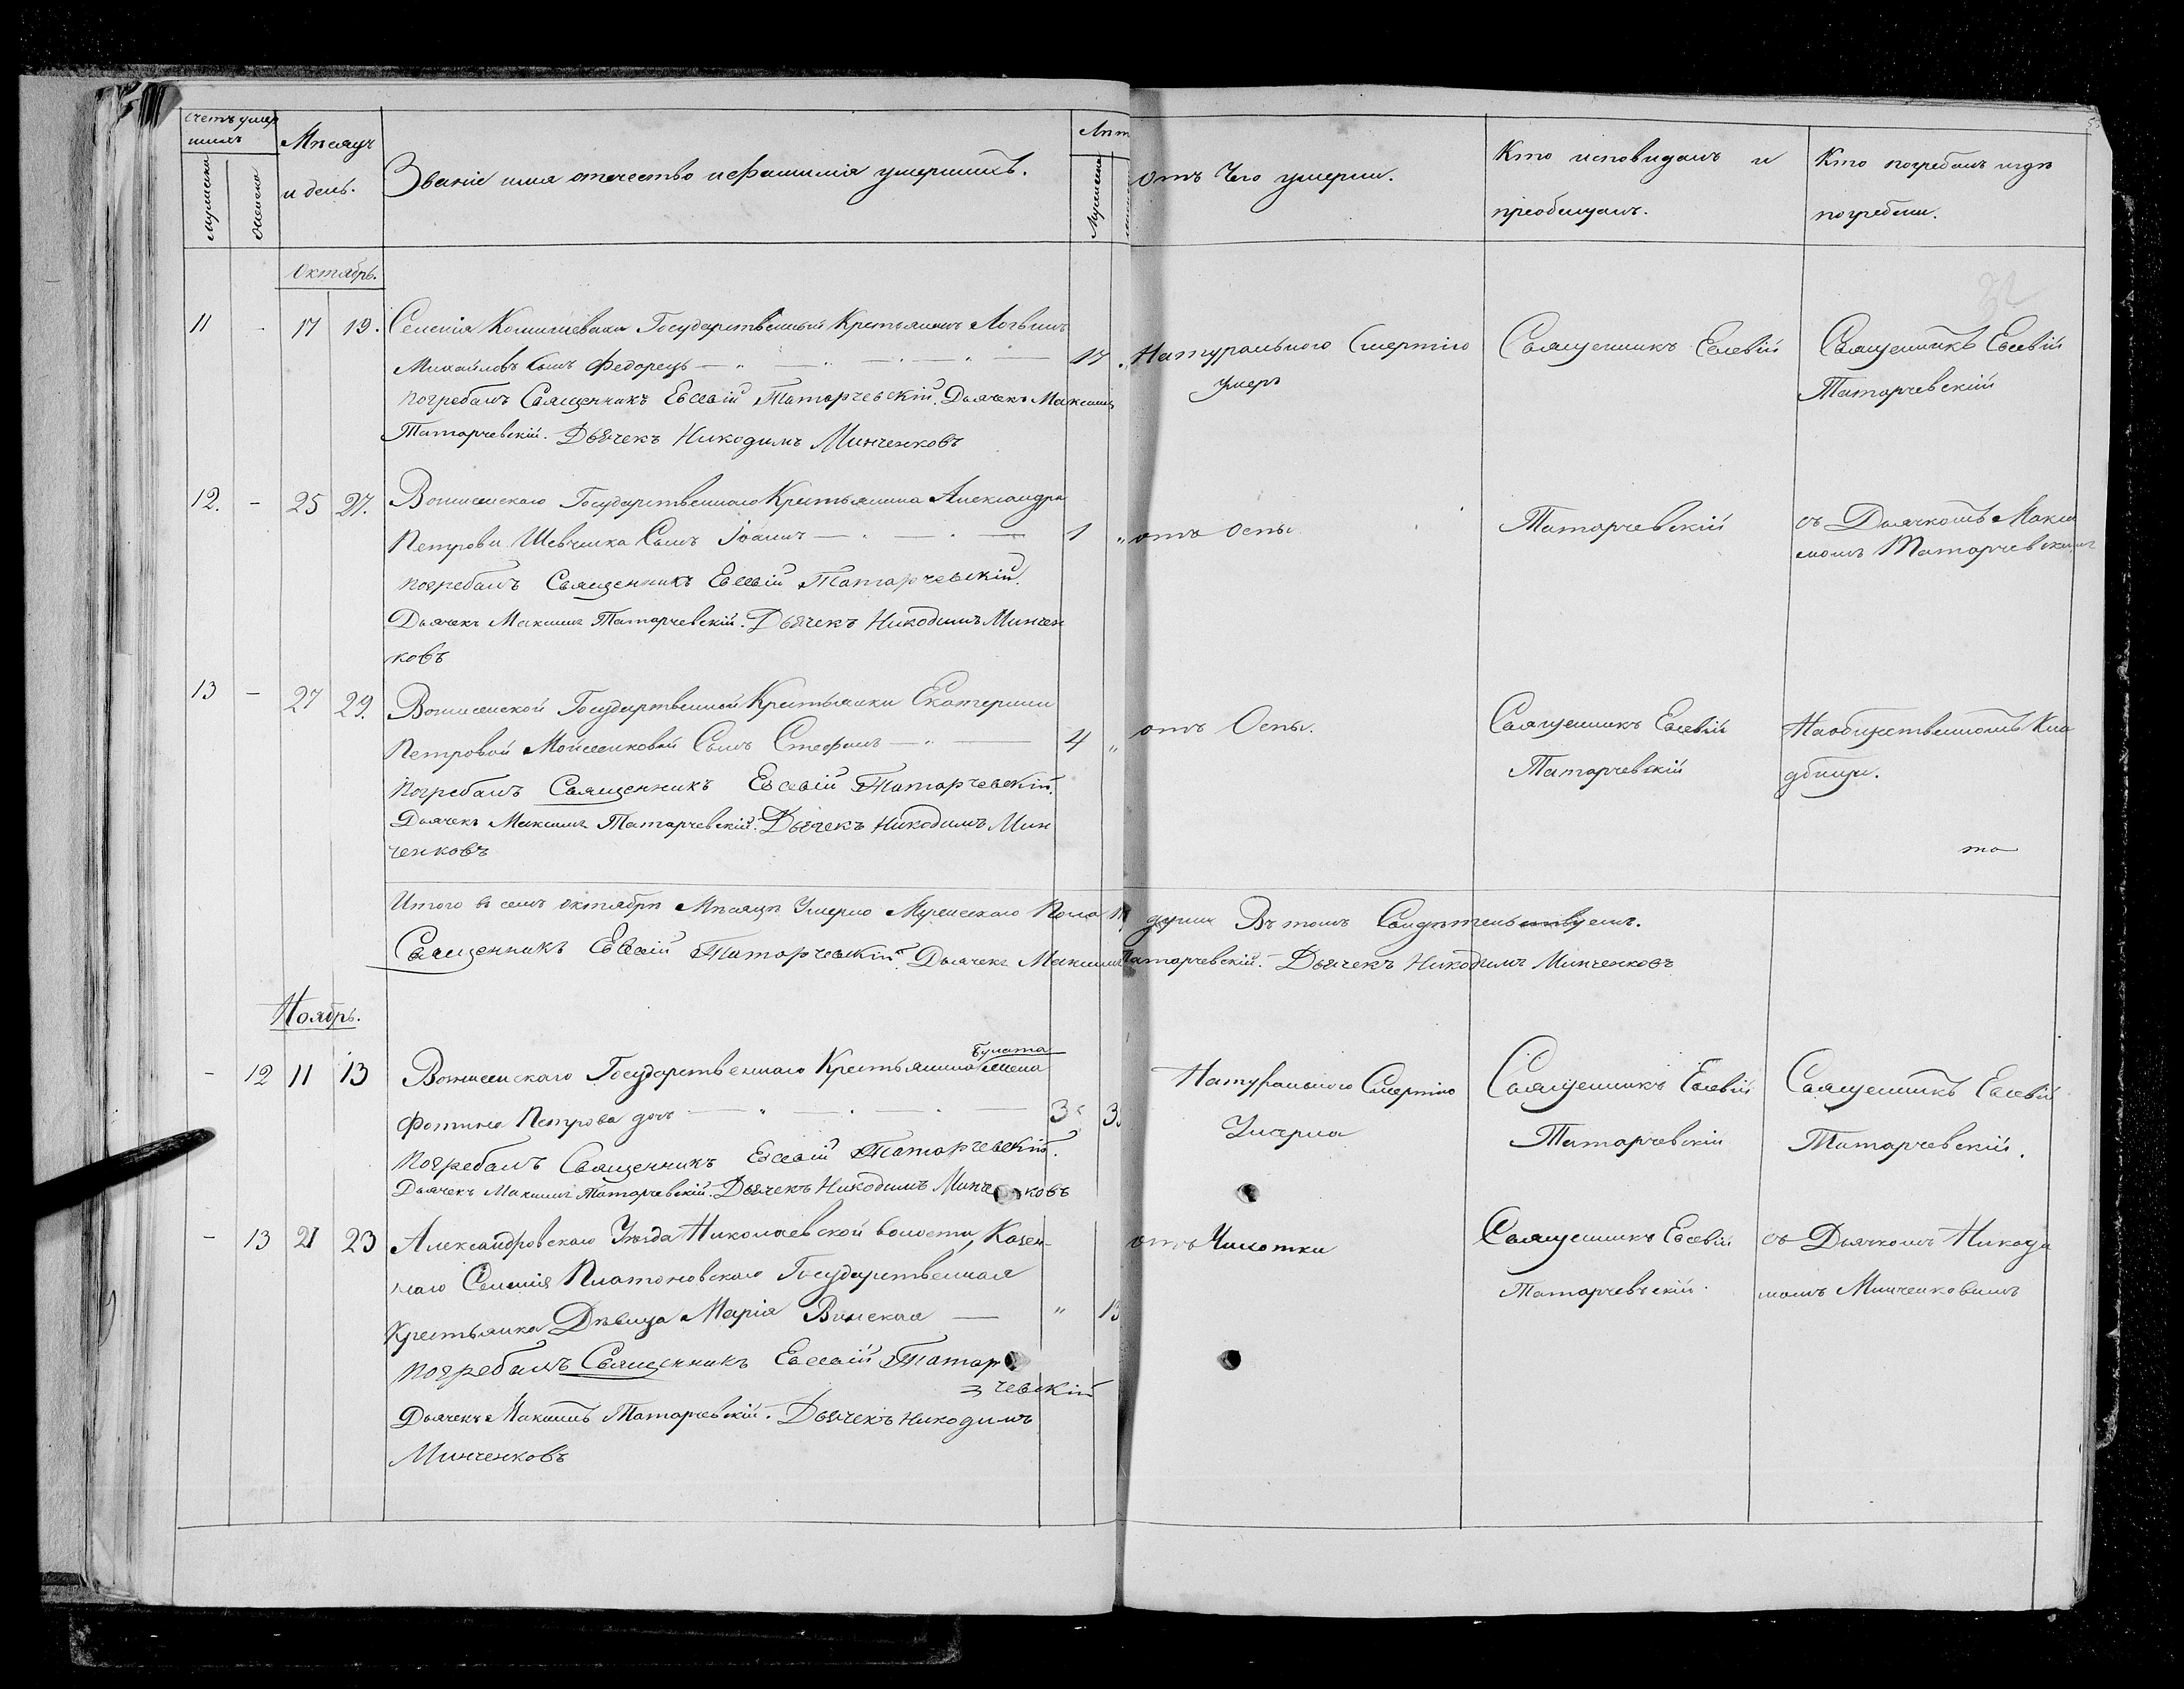 Счетъ умер
шихъ
Мѣсяцъ
и день.
мужеска
женска
Званіе имя отечество и фамилія умершихъ.
Лѣт
Мужеска
отъ Чего умерли.
Кто исповидалъ и
пріобщалъ.
Кто погребалъ и гдѣ
погребены.
Октябрь.
11 - 17 19. Селенія Государственный Крестьянинъ Логвинъ
Михайловъ Сынъ Федорецъ 17 Натуральною Смертію
умеръ
Священникъ Евсевій
Священникъ Евсевій
Татарчевскій
погребалъ Священникъ Евсевій Татарчевскій. Дьячекъ Максимъ
Татарчевскій. Дьячекъ Никодимъ Минченковъ
12. - 25 27. Государственнаго Крестьянина Александра
Петрова Шевченка Сынъ Іоаннъ 1 " отъ оспы
Татарчевскій
съ Дьячкомъ Макси
момъ Татарчевскимъ
погребалъ Священникъ Евсевій Татарчевскій.
Дьячекъ Максимъ Татарчевскій. Дьячекъ Никодимъ Минчен
ковъ
13 - 27 29. Государственной Крестьянки Екатерины
Петровой Мойсеиковой Сынъ Стефанъ 4 " отъ Оспы.
Священникъ Евсевій
Татарчевскій
На общественномъ Кла
дбищи.
погребалъ Священникъ Евсевій Татарчевскій.
Дьячекъ Максимъ Татарчевскій. Дьячекъ Никодимъ Мин
ченковъ
то
Итого въ семъ октябрѣ Мѣсяцѣ Умерло Мужескаго Пола души Въ томъ Свидѣтельствуемъ.
Священникъ Евсевій Татарчевскій. Дьячекъ Максимъ Татарчевскій. Дьячекъ Никодимъ Минченковъ
Ноябрь.
- 12 11 13 Государственнаго Крестьянина
Фотина Петрова дочь 3 3
Натуральною Смертію
Умерла
Священникъ Евсевій
Татарчевскій
Священникъ Евсевій
Татарчевскій.
Погребалъ Священникъ Евсевій Татарчевскій.
Дьячекъ Максимъ Татарчевскій. Дьячекъ Никодимъ Минченковъ
- 13 21 23 Александровскаго Уѣзда Николаевской волости, Казен-
наго Селенія Платоновскаго Государственная
Крестьянка Дѣвица Марія " 13
отъ Чихотки
Священникъ Евсевій
Татарчевскій.
съ Дьячкомъ Никоди
момъ Минченковымъ
погребалъ Священникъ Евсевій Татар
чевскій
Дьячекъ Максимъ Татарчевскій. Дьячекъ Никодимъ
Минченковъ